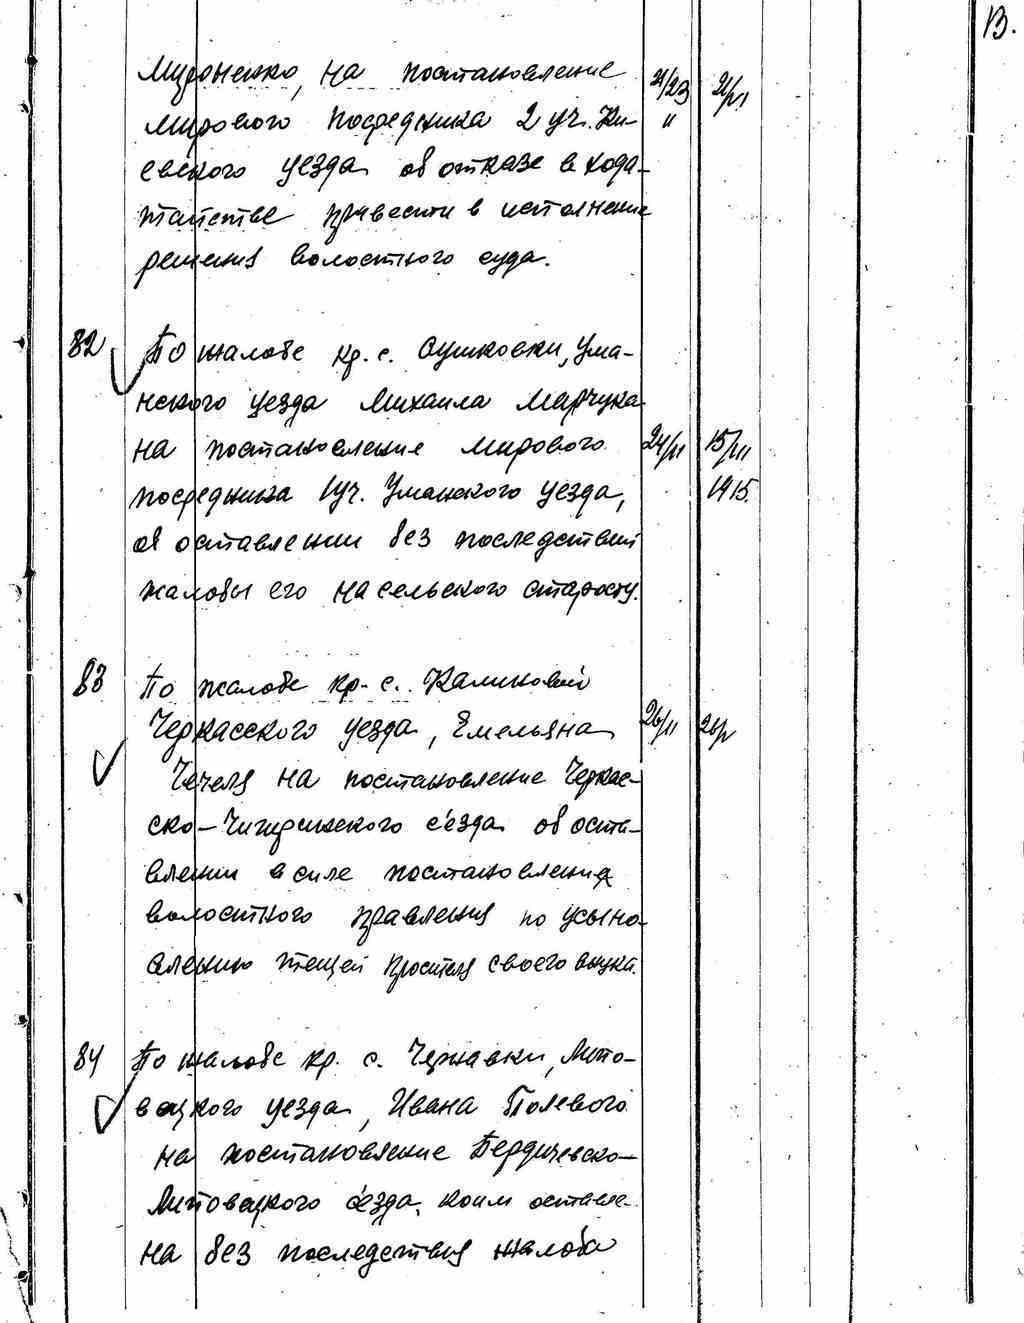 13.
Мироненко, на постановление 21/23 21/VI
мирового посредника 2 уч. Ки- II
евского уезда об отказе в хода-
тайстве привести в исполнение
решения волостного суда.
82 По жалобе кр. с. Сушковки, Ума-
нского уезда Михаила Марчука
на постановление мирового 24/II 15/VII
посредника 1 уч. Уманского уезда, 1915.
об оставлении без последствий
жалобы его на сельского старосту.
83 По жалобе кр. с. Калиновой
Черкасского уезда, Емельяна 26/II
Чечеля на постановление Черкас-
ско-Чигиринского съезда об оста-
влении в силе постановления
волостного правления по усыно-
влению тещей просителя своего внука.
84 По жалобе кр. с. Чернавки, Липо-
вецкого уезда, Ивана Полевого
на постановление Бердичевско-
Липовецкого съезда, коим оставле-
на без последствия жалоба